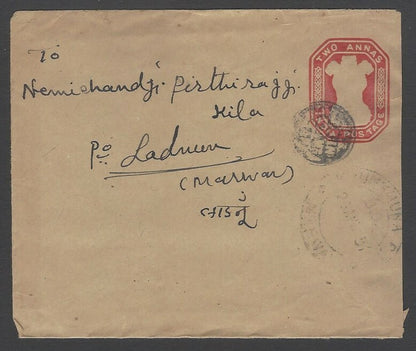 TWO ANNAS
INDIA POSTAGE
To
Nemichandji Pirthirajji
Kila
Po Ladnun
(Marwar)